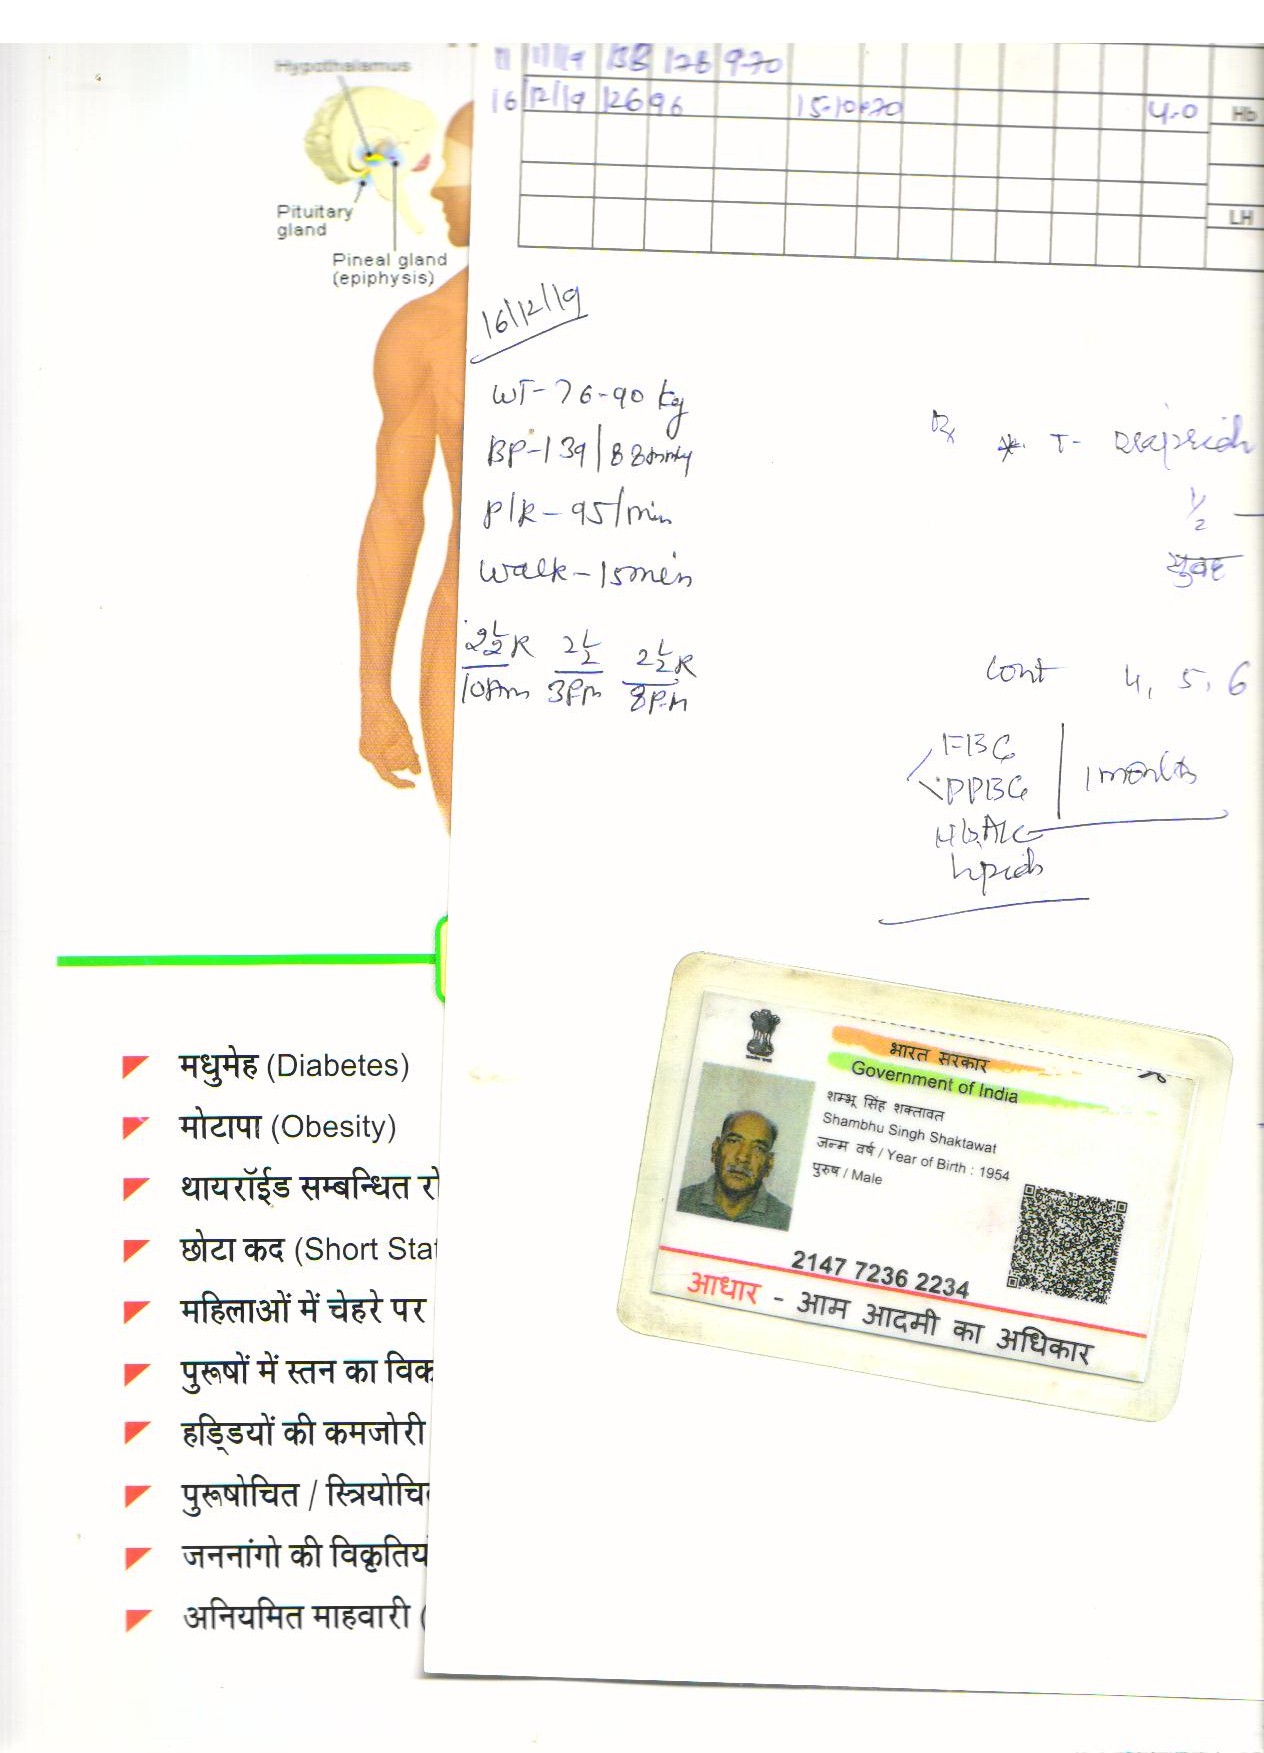 Hypothalamus
Pituitary
gland
Pineal gland
(epiphysis)
11 11/19 138 126 9.70
16 12/19 126 96 15.10 + 70 4.0 Hb
LH
16/12/19
WT- 76-90 kg
BP-139/88mmHg
P/R - 95/min
Walk - 15min
2½R 2½ 2½R
10Am 3Pm 8Pm
Rx * T-
½ —
सुबह
Cont 4, 5, 6
FBG
PPBG 1 month
HbA1C
Lipids
मधुमेह (Diabetes)
मोटापा (Obesity)
थायरॉईड सम्बन्धित रो
छोटा कद (Short Stat
महिलाओं में चेहरे पर
पुरूषों में स्तन का विक
हड्डियों की कमजोरी
पुरूषोचित / स्त्रियोचि
जननांगो की विकृतिय
अनियमित माहवारी (
भारत सरकार
Government of India
शम्भू सिंह शक्तावत
Shambhu Singh Shaktawat
जन्म वर्ष / Year of Birth : 1954
पुरुष / Male
2147 7236 2234
आधार - आम आदमी का अधिकार